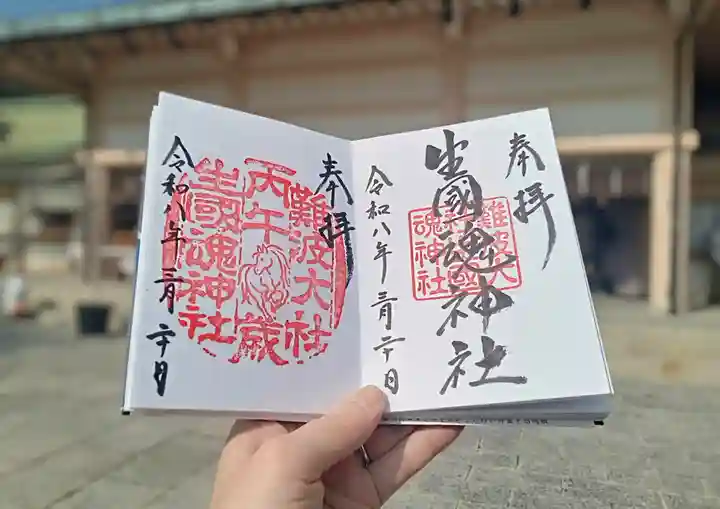 奉拝
生國魂神社
難波大社
生國魂神社
令和八年三月二十日
奉拝
難波大社
丙午歳
生國魂神社
令和八年三月二十日